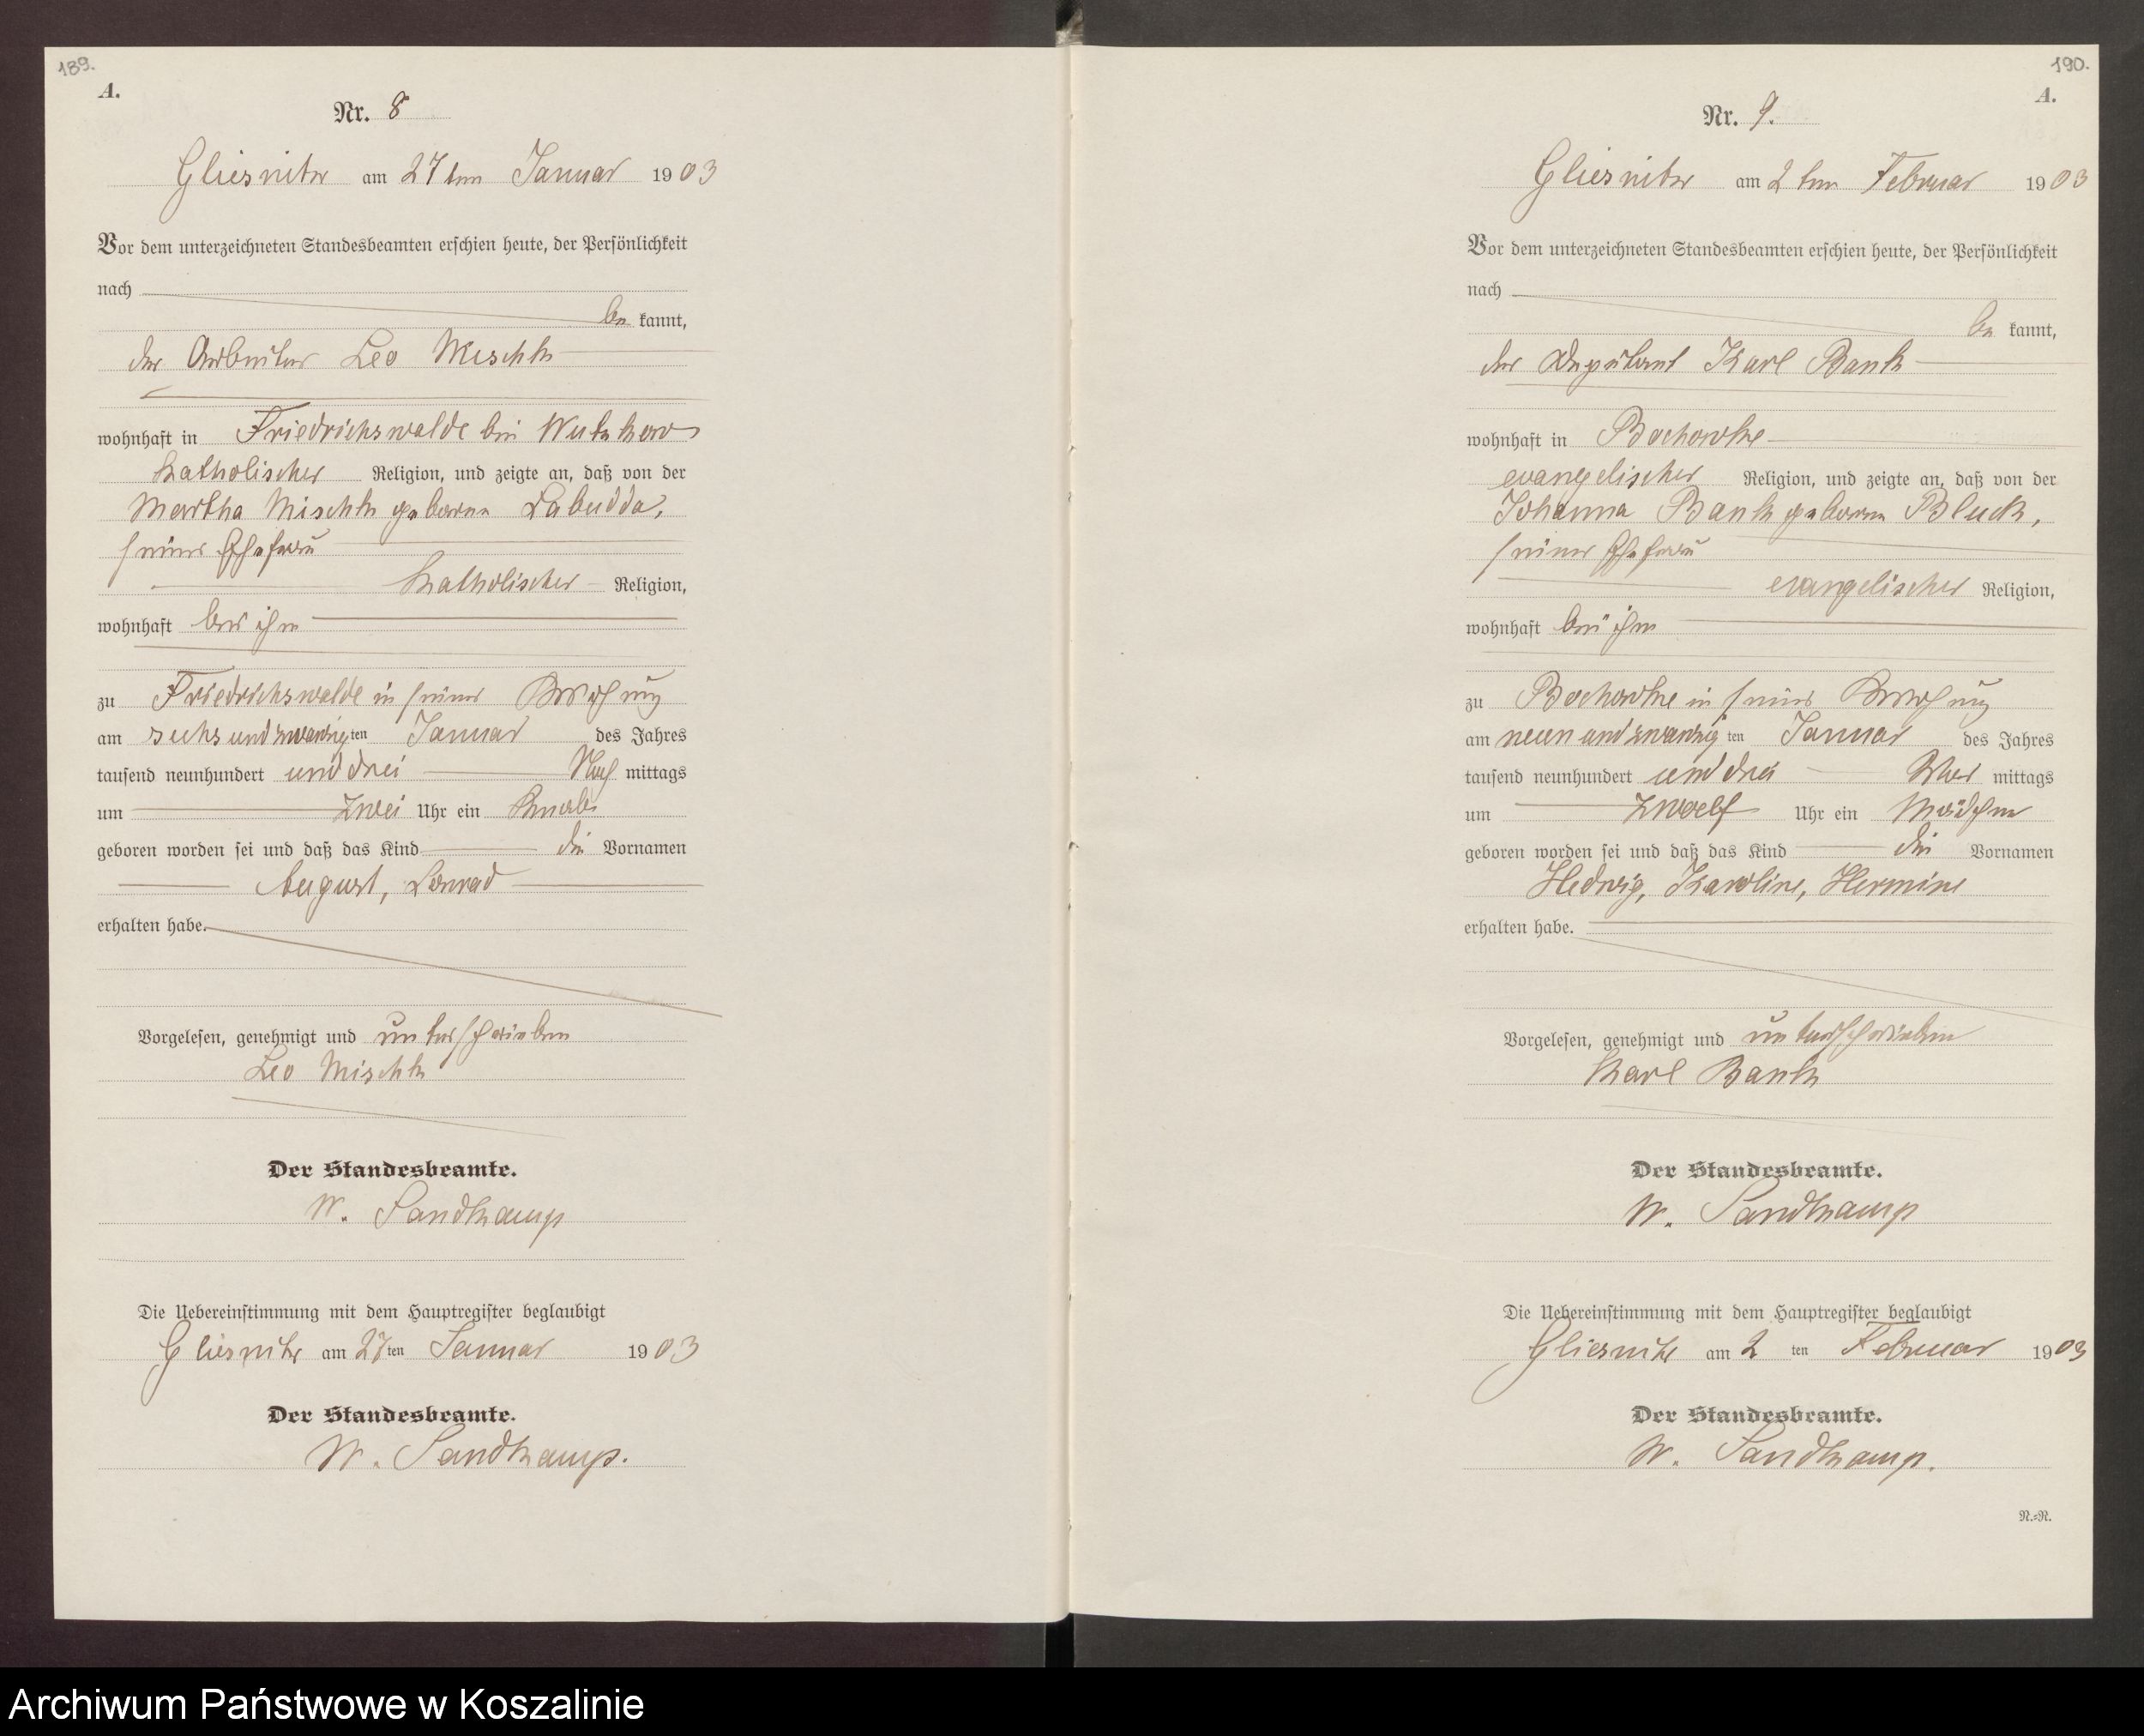 189.
A.
Nr. 8
Gliesnitz am 27ten Januar 1903
Vor dem unterzeichneten Standesbeamten erschien heute, der Persönlichkeit
nach
be kannt,
der Arbeiter Leo Mischke
wohnhaft in Friedrichswalde bei Wutzkow
katholischer Religion, und zeigte an, daß von der
Martha Mischke geborne Labudda,
seiner Ehefrau
katholischer Religion,
wohnhaft bei ihm
zu Friedrichswalde in seiner Wohnung
am sechsundzwanzigten Januar des Jahres
tausend neunhundert und drei Nach mittags
um zwei Uhr ein Knabe
geboren worden sei und daß das Kind die Vornamen
August, Conrad
erhalten habe.
Vorgelesen, genehmigt und unterschrieben
Leo Mischke
Der Standesbeamte.
W. Sandkamp
Die Uebereinstimmung mit dem Hauptregister beglaubigt
Gliesnitz am 27ten Januar 1903
Der Standesbeamte.
W. Sandkamp.
190.
A.
Nr. 9.
Gliesnitz am 2ten Februar 1903
Vor dem unterzeichneten Standesbeamten erschien heute, der Persönlichkeit
nach
be kannt,
der Deputant Karl Bank
wohnhaft in Bochowke
evangelischer Religion, und zeigte an, daß von der
Johanna Bank geborne Bluck,
seiner Ehefrau
evangelischer Religion,
wohnhaft bei ihm
zu Bochowke in seiner Wohnung
am neunundzwanzigten Januar des Jahres
tausend neunhundert und drei Vor mittags
um zwoelf Uhr ein Mädchen
geboren worden sei und daß das Kind die Vornamen
Hedwig, Karoline, Hermine
erhalten habe.
Vorgelesen, genehmigt und unterschrieben
Karl Bank
Der Standesbeamte.
W. Sandkamp
Die Uebereinstimmung mit dem Hauptregister beglaubigt
Gliesnitz am 2 ten Februar 1903
Der Standesbeamte.
W. Sandkamp.
N.=N.
Archiwum Państwowe w Koszalinie